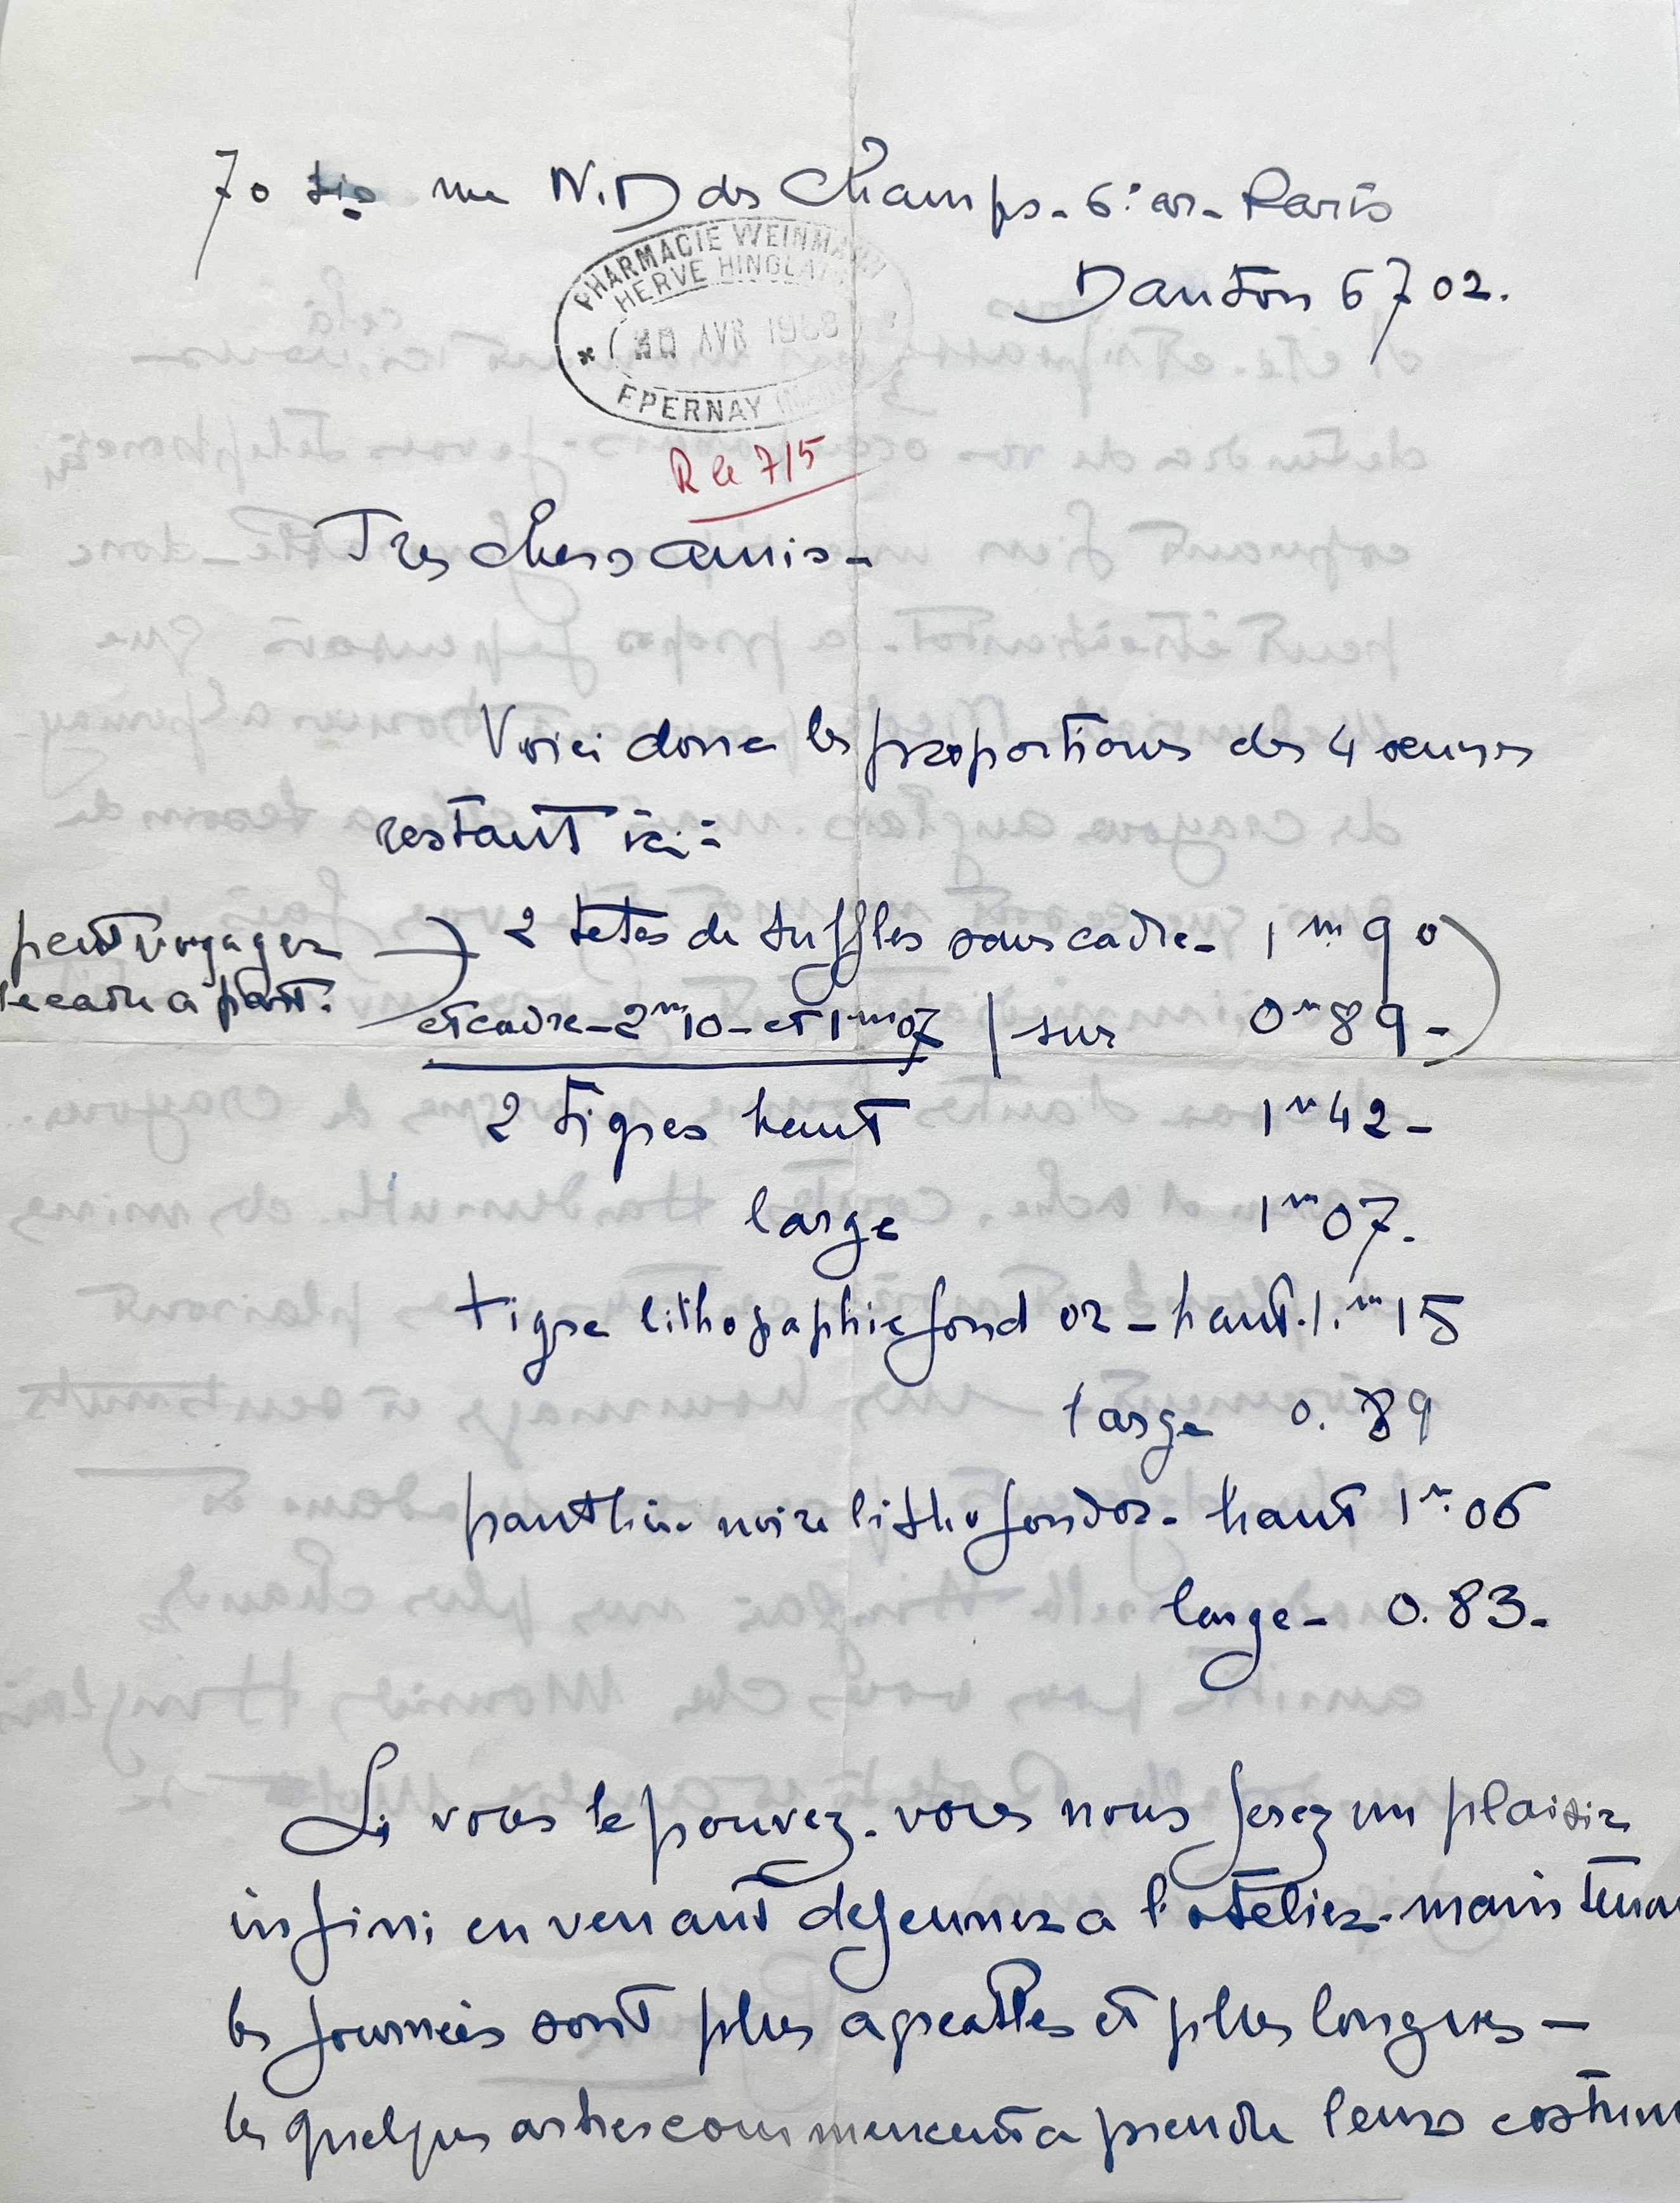 70 bis rue N.D des Champs - 6e ar - Paris
Danton 67 02.
PHARMACIE WEINMANN
HERVE HINGLAIS
30 AVR 1968
EPERNAY (MARNE)
R le 7/5
Tres chers amis -
Voici donc les proportions des 4 oeuvres
restant ici :
peut voyager
le cadre a part.
2 tetes de buffles sans cadre - 1m90
et cadre - 2m10 - et 1m07 / sur 0m89 -
2 tigres haut 1m42 -
large 1m07.
tigre lithographie fond or - haut. 1.m15
large 0.89
panthere noire litho fond or - haut 1m.06
large - 0.83 -
Si vous le pouvez - vous nous ferez un plaisir
infini en venant dejeuner a l'atelier - maintenan
les journées sont plus agreables et plus longues -
les quelques arbres commencent a prendre leurs costum